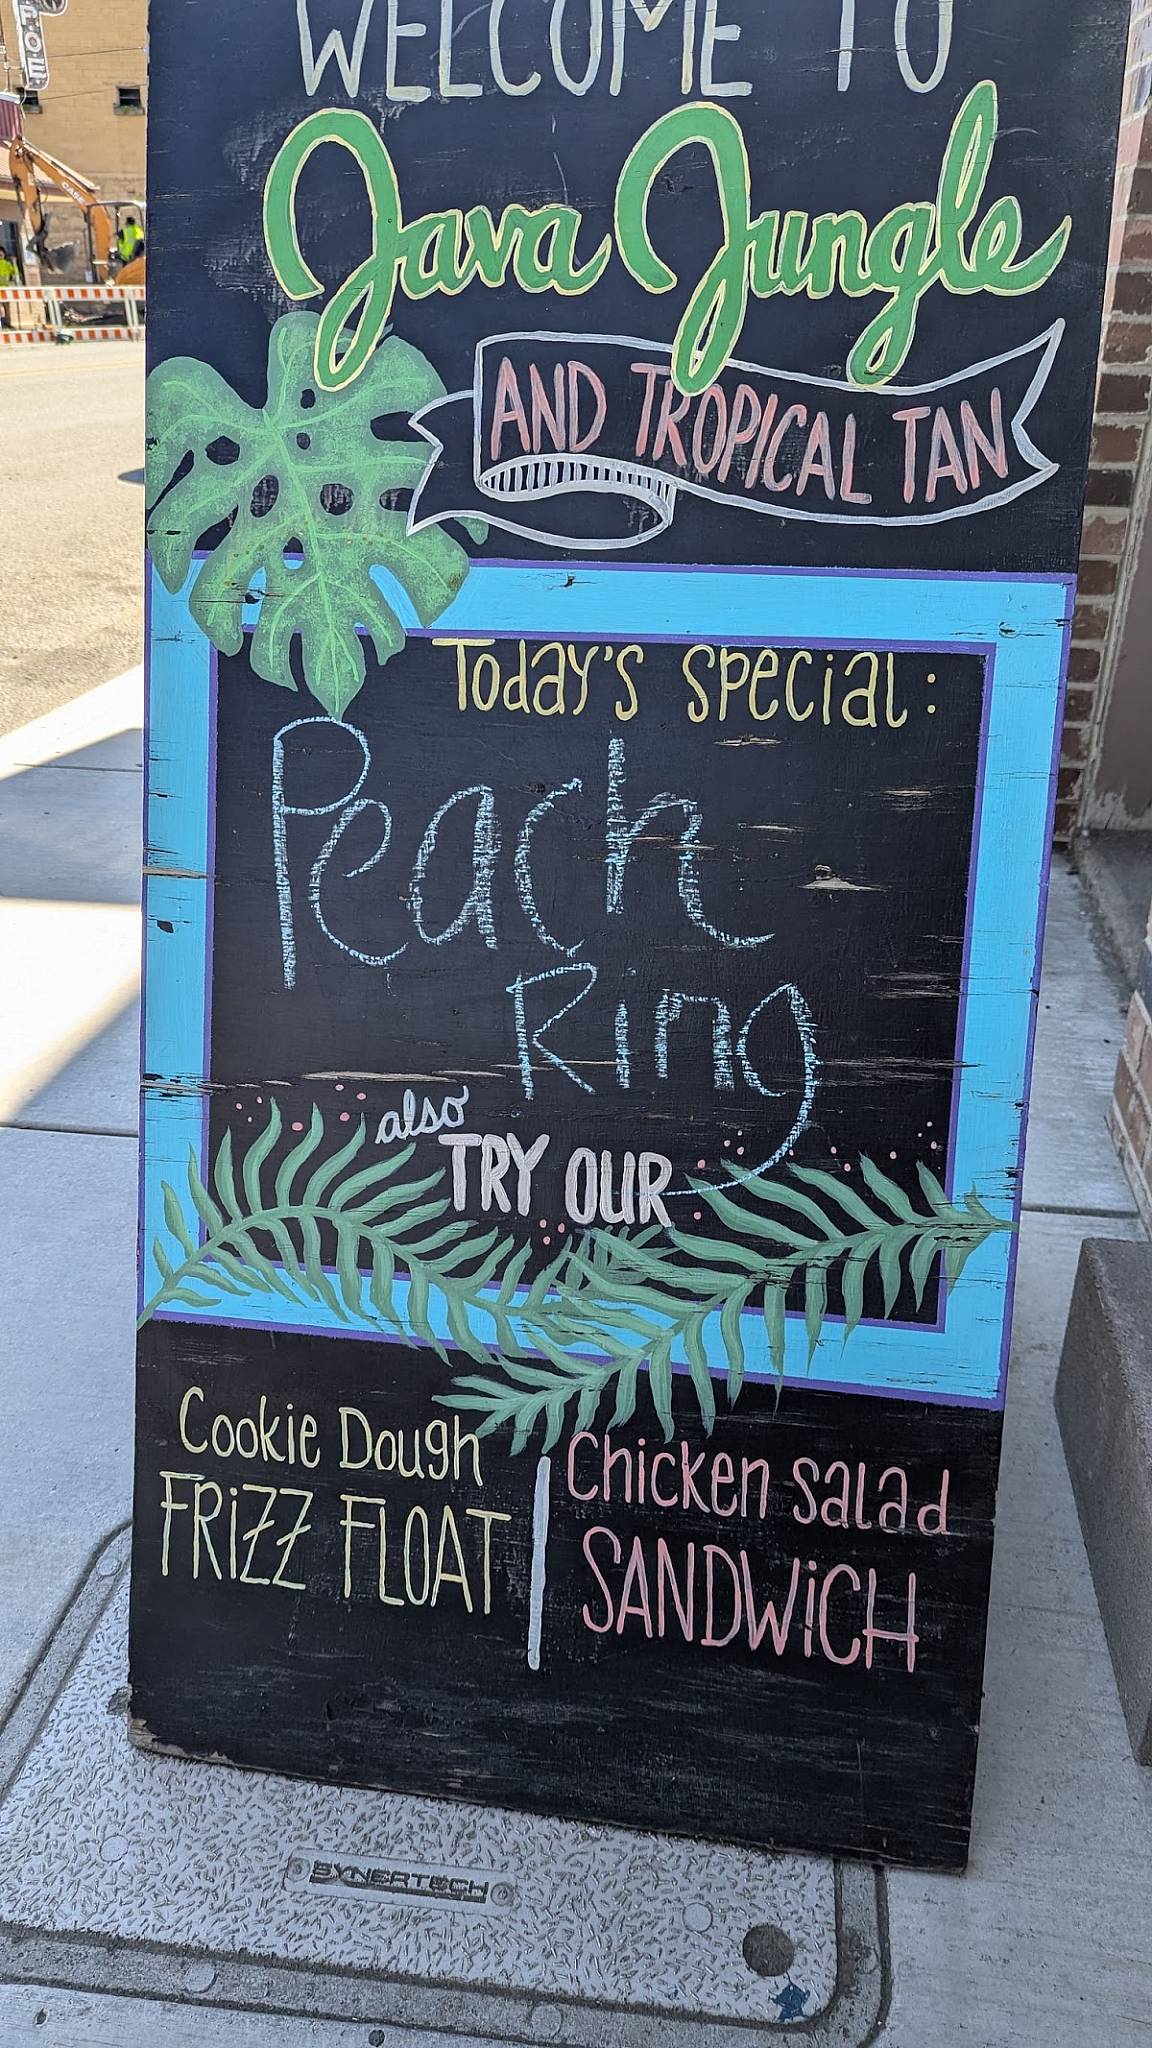 WELCOME TO
Java Jungle
AND TROPICAL TAN
Today's special:
Peach
Ring
also
TRY OUR
Cookie Dough
FRiZZ FLOAT
Chicken salad
SANDWiCH
SYNERTECH
CASE